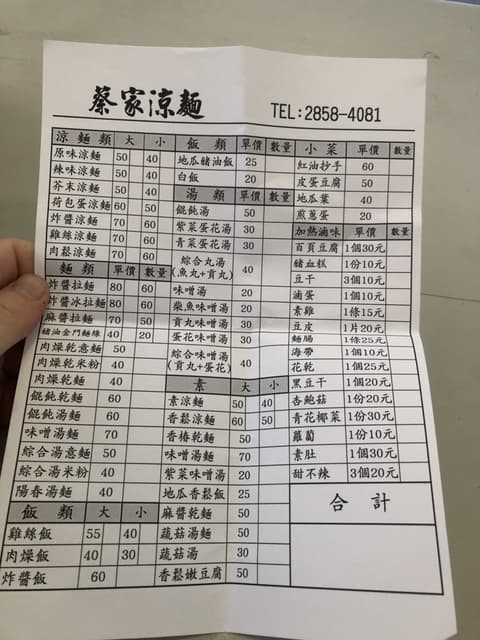 蔡家涼麵 TEL:2858-4081
涼麵類 大 小
原味涼麵 50 40
辣味涼麵 50 40
芥末涼麵 50 40
荷包蛋涼麵 60 50
炸醬涼麵 70 60
雞絲涼麵 70 60
肉鬆涼麵 70 60
麵類 單價 數量
炸醬拉麵 80 60
炸醬冰拉麵 80 60
麻醬拉麵 70 50
豬油金門麵線 40 20
肉燥乾意麵 50
肉燥乾米粉 40
肉燥乾麵 40
餛飩乾麵 60
餛飩湯麵 60
味噌湯麵 70
綜合湯意麵 50
綜合湯米粉 40
陽春湯麵 40
飯類 大 小
雞絲飯 55 40
肉燥飯 40 30
炸醬飯 60
飯類 單價 數量
地瓜豬油飯 25
白飯 20
湯類 單價 數量
餛飩湯 50
紫菜蛋花湯 30
青菜蛋花湯 30
綜合丸湯
(魚丸+貢丸) 40
味噌湯 20
柴魚味噌湯 20
貢丸味噌湯 30
蛋花味噌湯 30
綜合味噌湯
(貢丸+蛋花) 40
素 大 小
素涼麵 50 40
香鬆涼麵 60 50
香椿乾麵 50
味噌湯麵 70
紫菜味噌湯 20
地瓜香鬆飯 25
麻醬乾麵 50
蔬菇湯麵 50
蔬菇湯 30
香鬆嫩豆腐 50
小菜 單價 數量
紅油抄手 60
皮蛋豆腐 50
地瓜葉 40
煎蔥蛋 20
加熱滷味 單價 數量
百頁豆腐 1個30元
豬血糕 1份10元
豆干 3個10元
滷蛋 1個10元
素雞 1條15元
豆皮 1片20元
麵腸 1條25元
海帶 1個10元
花乾 1個25元
黑豆干 1個20元
杏鮑菇 1份20元
青花椰菜 1份30元
蘿蔔 1份10元
素肚 1個30元
甜不辣 3個20元
合計